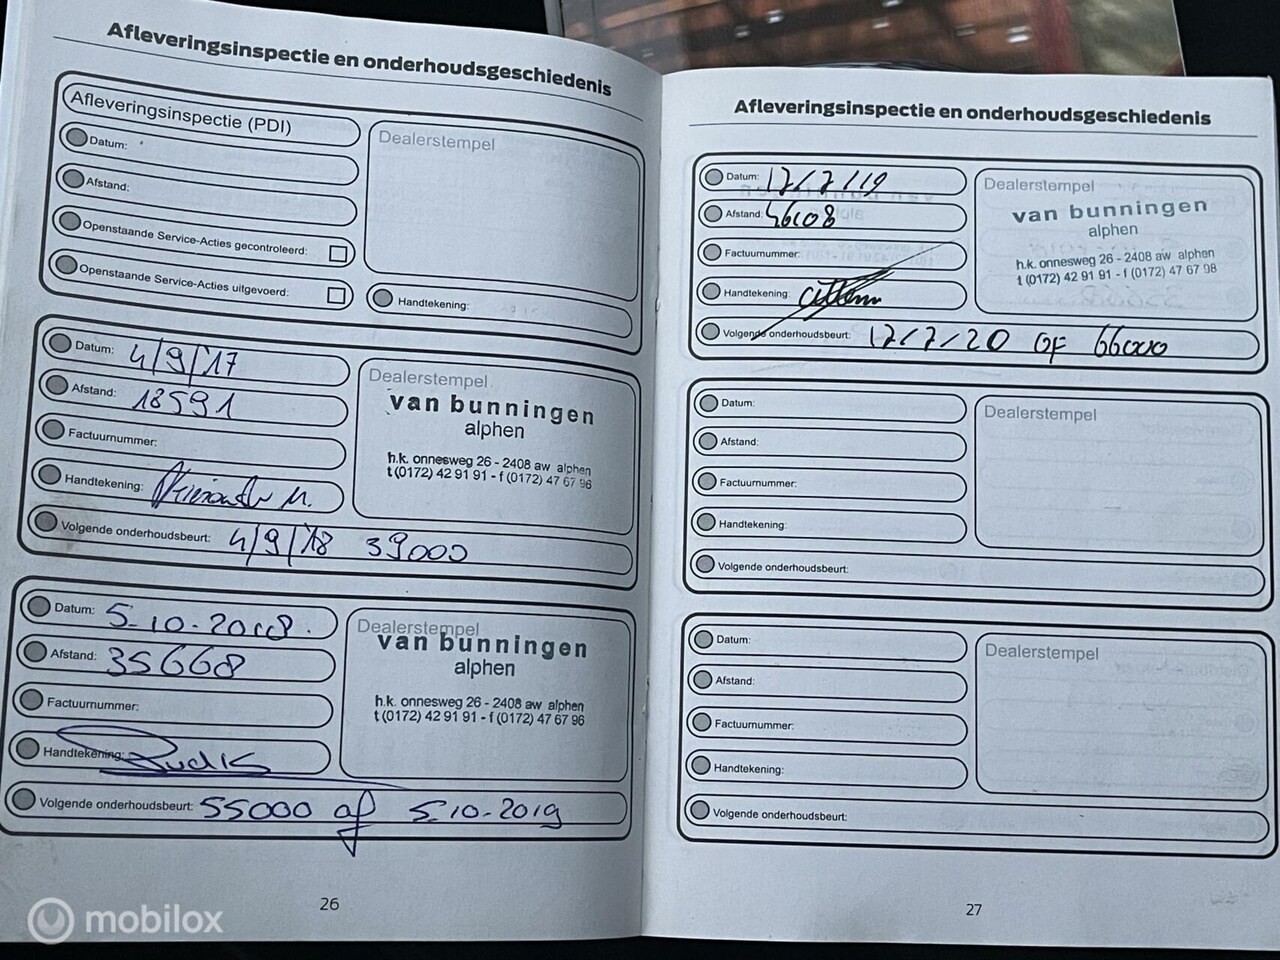 Afleveringsinspectie en onderhoudsgeschiedenis
Afleveringsinspectie (PDI)
Datum:
Afstand:
Openstaande Service-Acties gecontroleerd:
Openstaande Service-Acties uitgevoerd:
Dealerstempel
Handtekening:
Datum: 4/9/'17
Afstand: 18591
Factuurnummer:
Handtekening:
Volgende onderhoudsbeurt: 4/9/'18 39000
Dealerstempel
van bunningen
alphen
h.k. onnesweg 26 - 2408 aw alphen
t (0172) 42 91 91 - f (0172) 47 67 98
Datum: 5-10-2018.
Afstand: 35668
Factuurnummer:
Handtekening:
Volgende onderhoudsbeurt: 55000 of 5-10-2019
Dealerstempel
van bunningen
alphen
h.k. onnesweg 26 - 2408 aw alphen
t (0172) 42 91 91 - f (0172) 47 67 98
26
Afleveringsinspectie en onderhoudsgeschiedenis
Datum: 12/7/19
Afstand: 46108
Factuurnummer:
Handtekening:
Volgende onderhoudsbeurt: 12/7/20 OF 66000
Dealerstempel
van bunningen
alphen
h.k. onnesweg 26 - 2408 aw alphen
t (0172) 42 91 91 - f (0172) 47 67 98
Datum:
Afstand:
Factuurnummer:
Handtekening:
Volgende onderhoudsbeurt:
Dealerstempel
Datum:
Afstand:
Factuurnummer:
Handtekening:
Volgende onderhoudsbeurt:
Dealerstempel
27
mobilox